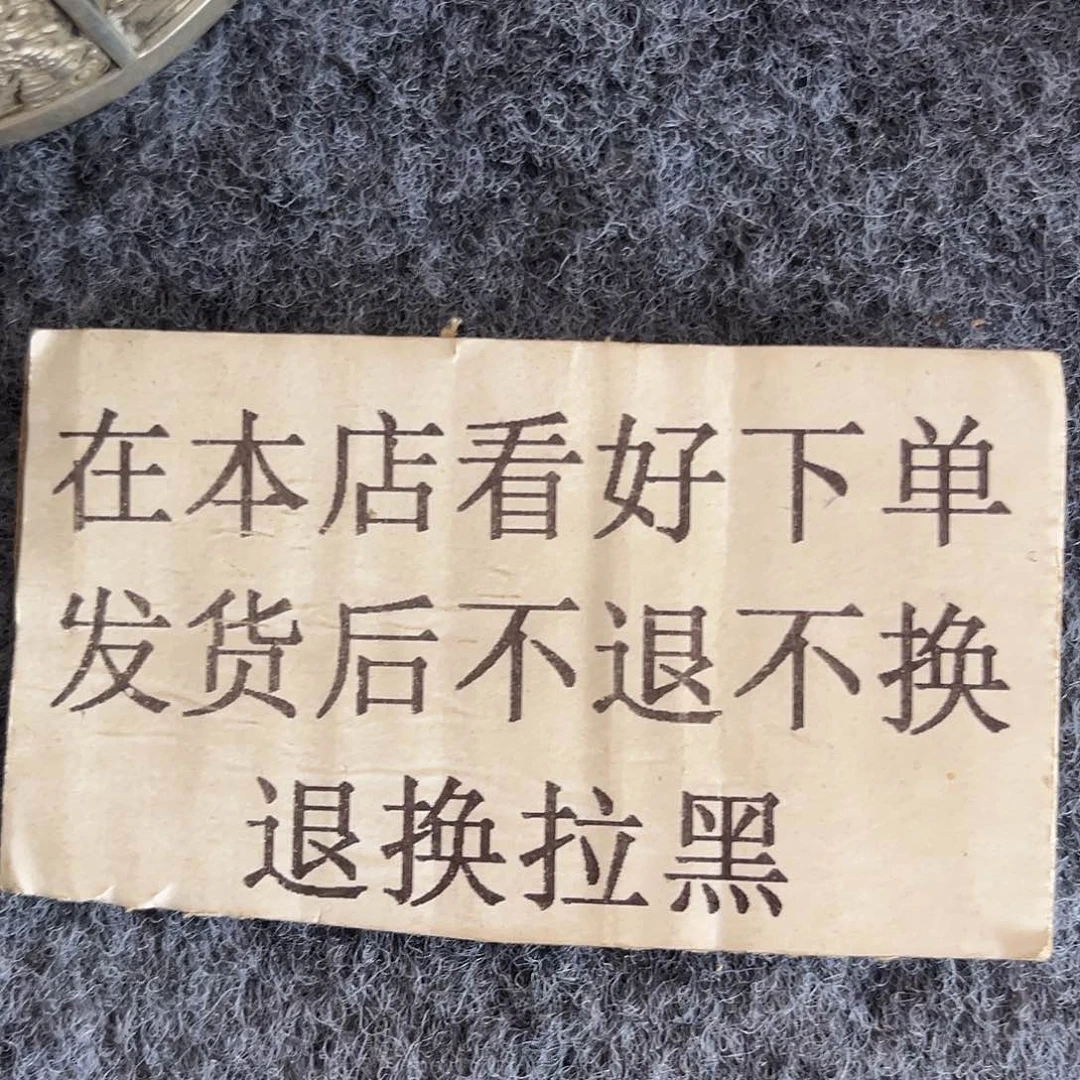 在本店看好下单
发货后不退不换
退换拉黑